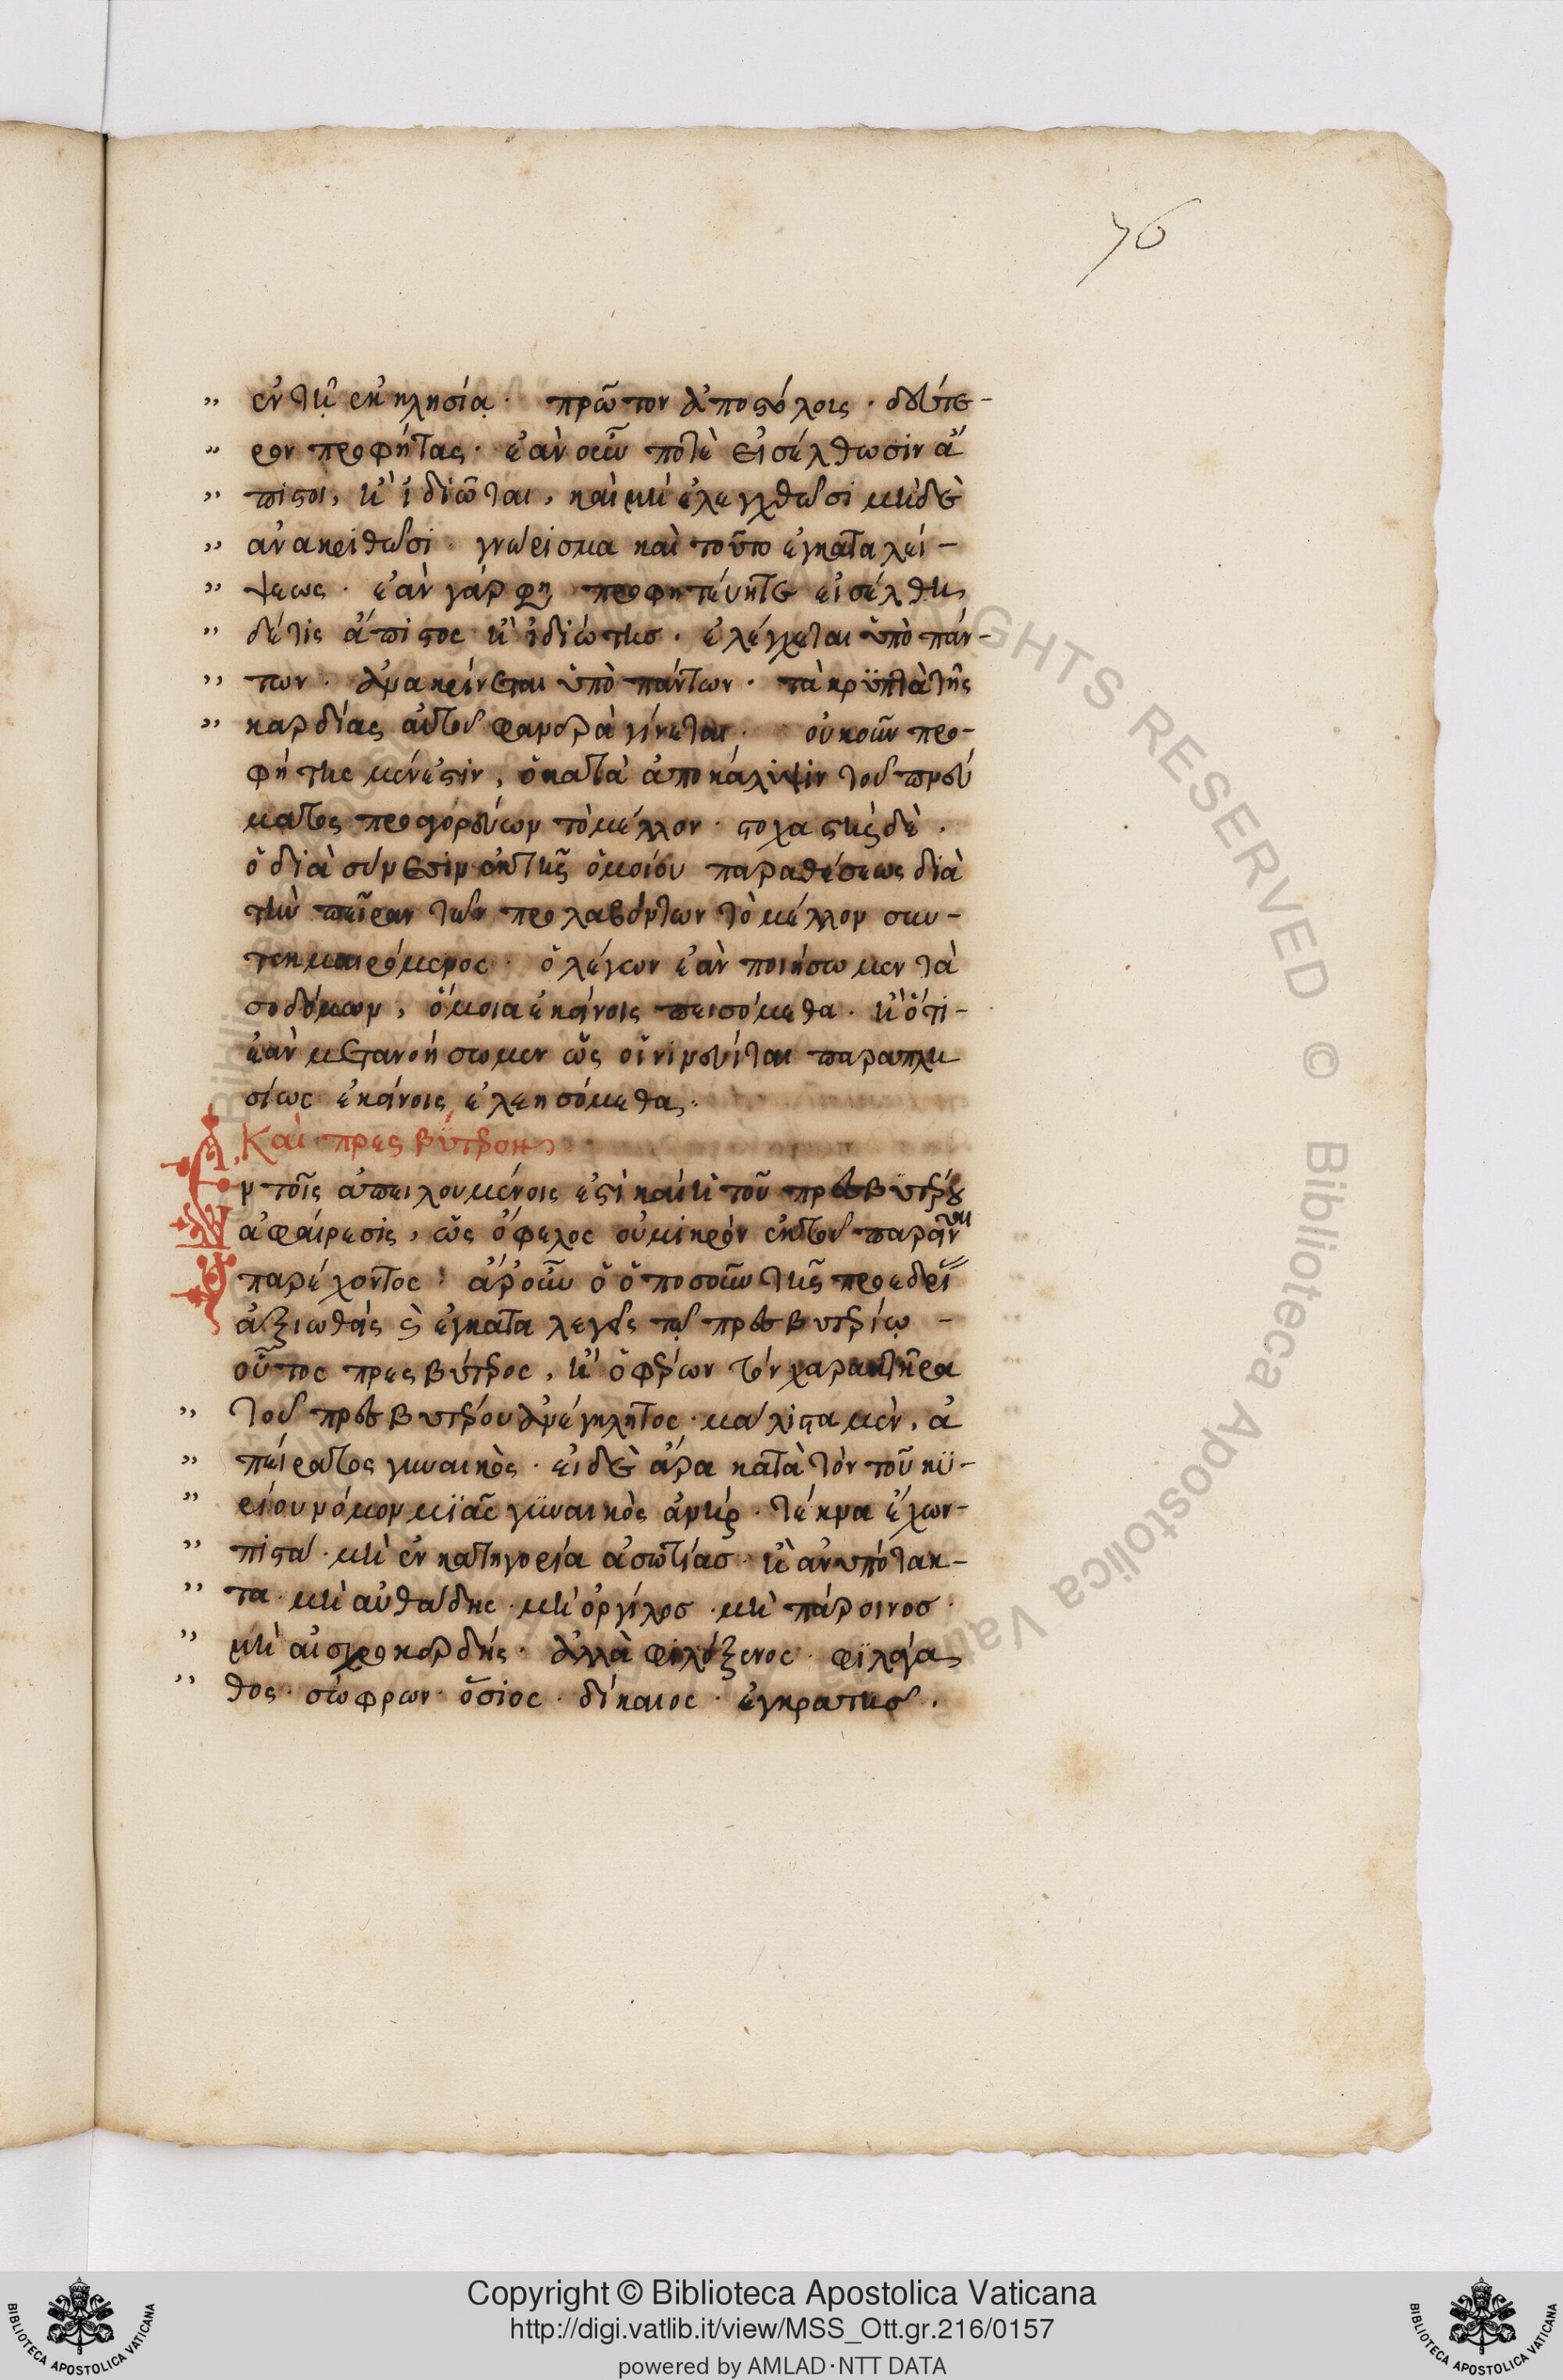 76
ἐν τῆ ἐκκλησίᾳ· πρῶτον ἀποστόλοις· δεύτε-
ρον προφήτας· ἐὰν οὖν ποτὲ εἰσέλθωσιν ἄ
πιστοι, ἢ ἰδιῶται, καὶ μὴ ἐλεγχθῶσι μηδὲ
ἀνακριθῶσι· γνώρισμα καὶ τοῦτο ἐγκαταλεί-
ψεως· ἐὰν γάρ φη προφητεύητε εἰσέλθη
δέ τις ἄπιστος ἢ ἰδιώτησ· ἐλέγχεται ὑπὸ πάν-
των· ἀνακρίνεται ὑπὸ πάντων· τὰ κρϋπτὰ τῆς
καρδίας αὐτοῦ φανερὰ γίνεται· οὐκοῦν προ-
φήτης μέν ἐστιν, ὁ κατὰ ἀποκάλιψιν τοῦ πνεύ
ματος προαγορεύων τὸ μέλλον· στοχαστὴς δὲ,
ὁ διὰ σύνεσιν ἐκ τῆς ὁμοίου παραθέσεως διὰ
τὴν πεῖραν τῶν προλαβόντων τὸ μέλλον συν-
τεκμαιρόμενος· ὁ λέγων ἐὰν ποιήσωμεν τὰ
σοδόμων, ὅμοια ἐκείνοις πεισόμεθα· ἢ ὅτι-
ἐὰν μετανοήσωμεν ὡς οἱ νινευίται παραπλη
σίως ἐκείνοις ἐλεηθσόμεθα·
Καὶ πρεσβύτερον
Ἐν τοῖς ἀπειλουμένοις ἐστὶ καὶ ἡ τοῦ πρεσβυτέρου
ἀφαίρεσις, ὡς ὄφελος οὐ μικρὸν ἐκ τοῦ παρεῖναι
παρέχοντος· ἆρ' οὖν ὁ ὁποσοῦν τῆς προεδρί
ἀξιωθεὶς καὶ ἐγκαταλεγεὶς τῷ πρεσβυτερίῳ -
οὗτος πρεσβύτερος, ἢ ὁ φέρων τὸν χαρακτῆρα
τοῦ πρεσβυτέρου ἀνέγκλητος· μάλιστα μὲν, ἀ
πείρατος γυναικὸς· εἰ δὲ ἄρα κατὰ τὸν τοῦ κϋ-
ρίου νόμον μϊᾶς γϋναικὸς ἀνήρ· τέκνα ἔχων-
πιστά· μὴ ἐν κατηγορία ἀσωτίασ· ἢ ἀνυπότακ-
τα· μὴ αὐθάδης· μὴ ὀργίλοσ· μὴ πάροινοσ·
μὴ αἰσχροκερδής· ἀλλὰ φιλόξενος· φϊλαγά
θος· σώφρων· ὅσιος· δίκαιος· ἐγκρατησ·
Copyright © Biblioteca Apostolica Vaticana
http://digi.vatlib.it/view/MSS_Ott.gr.216/0157
powered by AMLAD·NTT DATA